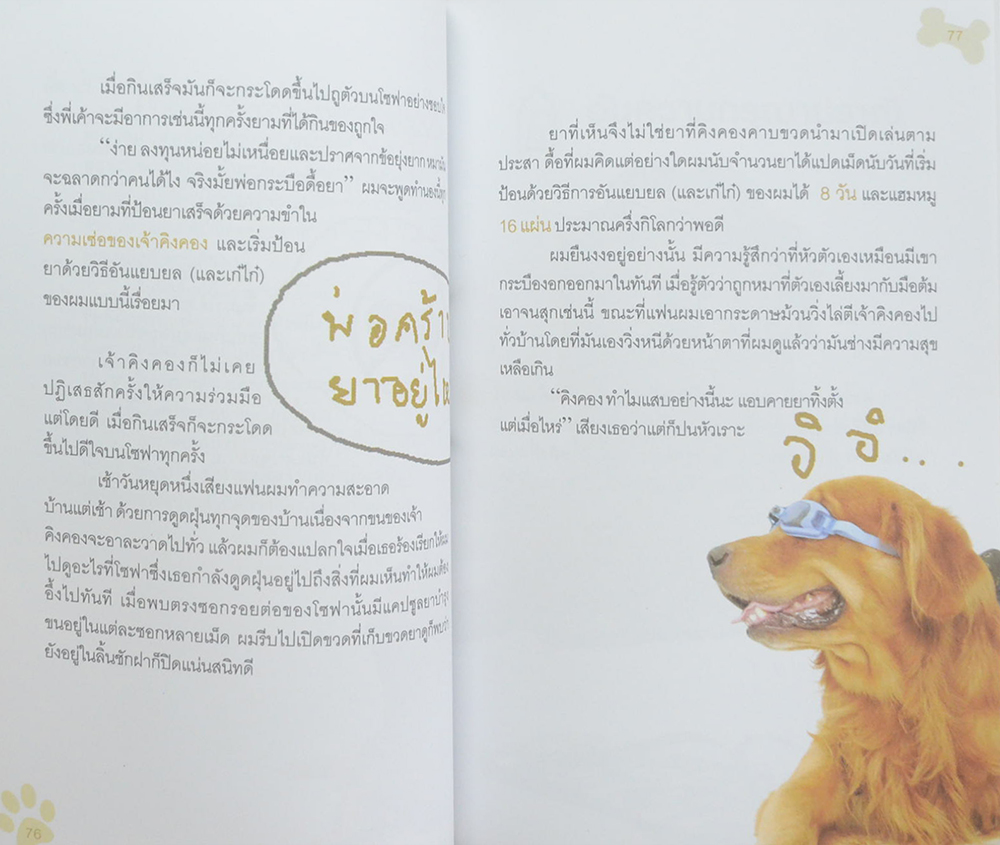 เมื่อกินเสร็จมันก็จะกระโดดขึ้นไปถูตัวบนโซฟาอย่างชอบใจ
ซึ่งพี่เค้าจะมีอาการเช่นนี้ทุกครั้งยามที่ได้กินของถูกใจ
“ง่าย ลงทุนหน่อยไม่เหนื่อยและปราศจากข้อยุ่งยาก หมามัน
จะฉลาดกว่าคนได้ไง จริงมั้ยพ่อกระบือดื้อยา” ผมจะพูดทำนองนี้ทุก
ครั้งเมื่อยามที่ป้อนยาเสร็จด้วยความขำใน
ความเซ่อของเจ้าคิงคอง และเริ่มป้อน
ยาด้วยวิธีอันแยบยล (และเก๋ไก๋)
ของผมแบบนี้เรื่อยมา
พ่อคร้าบ
ยาอยู่ไหน
เจ้าคิงคองก็ไม่เคย
ปฏิเสธสักครั้งให้ความร่วมมือ
แต่โดยดี เมื่อกินเสร็จก็จะกระโดด
ขึ้นไปดีใจบนโซฟาทุกครั้ง
เช้าวันหยุดหนึ่งเสียงแฟนผมทำความสะอาด
บ้านแต่เช้า ด้วยการดูดฝุ่นทุกจุดของบ้านเนื่องจากขนของเจ้า
คิงคองจะอาละวาดไปทั่ว แล้วผมก็ต้องแปลกใจเมื่อเธอร้องเรียกให้ผม
ไปดูอะไรที่โซฟาซึ่งเธอกำลังดูดฝุ่นอยู่ไปถึงสิ่งที่ผมเห็นทำให้ผมต้อง
อึ้งไปทันที เมื่อพบตรงซอกรอยต่อของโซฟานั้นมีแคปซูลยาบำรุง
ขนอยู่ในแต่ละซอกหลายเม็ด ผมรีบไปเปิดขวดที่เก็บขวดยาดูก็พบว่า
ยังอยู่ในลิ้นชักฝาก็ปิดแน่นสนิทดี
76
77
ยาที่เห็นจึงไม่ใช่ยาที่คิงคองคาบขวดนำมาเปิดเล่นตาม
ประสา ดื้อที่ผมคิดแต่อย่างใดผมนับจำนวนยาได้แปดเม็ดนับวันที่เริ่ม
ป้อนด้วยวิธีการอันแยบยล (และเก๋ไก๋) ของผมได้ 8 วัน และแฮมหมู
16 แผ่น ประมาณครึ่งกิโลกว่าพอดี
ผมยืนงงอยู่อย่างนั้น มีความรู้สึกว่าที่หัวตัวเองเหมือนมีเขา
กระบืองอกออกมาในทันที เมื่อรู้ตัวว่าถูกหมาที่ตัวเองเลี้ยงมากับมือต้ม
เอาจนสุกเช่นนี้ ขณะที่แฟนผมเอากระดาษม้วนวิ่งไล่ตีเจ้าคิงคองไป
ทั่วบ้านโดยที่มันเองวิ่งหนีด้วยหน้าตาที่ผมดูแล้วว่ามันช่างมีความสุข
เหลือเกิน
“คิงคอง ทำไมแสบอย่างนี้นะ แอบคายยาทิ้งตั้ง
แต่เมื่อไหร่” เสียงเธอว่าแต่ก็ปนหัวเราะ
อิ อิ....